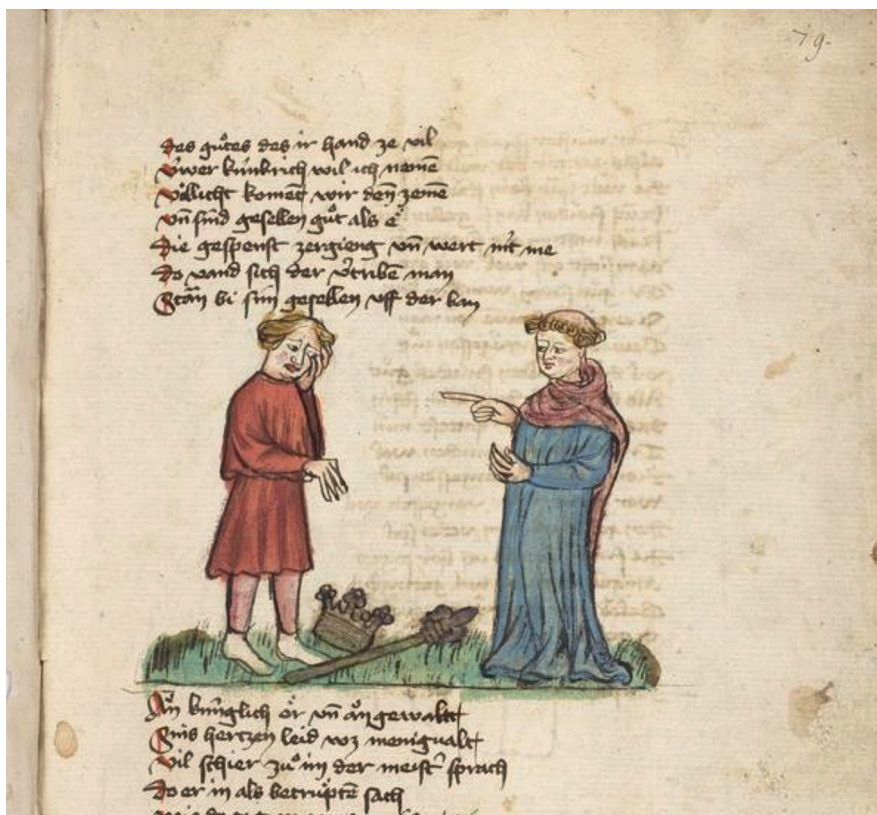 79.
des guͦtes des ir hand ze vil
v̓wer kúnkrich wil ich nemē
villicht koment wir deñ zemē
vñ sind gesellen guͦt als e
die gespenst zergieng vñ wert nit me
do vand sich der v̓tribē man
Stān bi sim gesellen vff der ban
Aͧn kúnglich er vñ aͧn gewaltt
Sins hertzen leid wz menigualt
vil schier zuͦ im der meist̓ sprach
do er in als betruͤptē sach